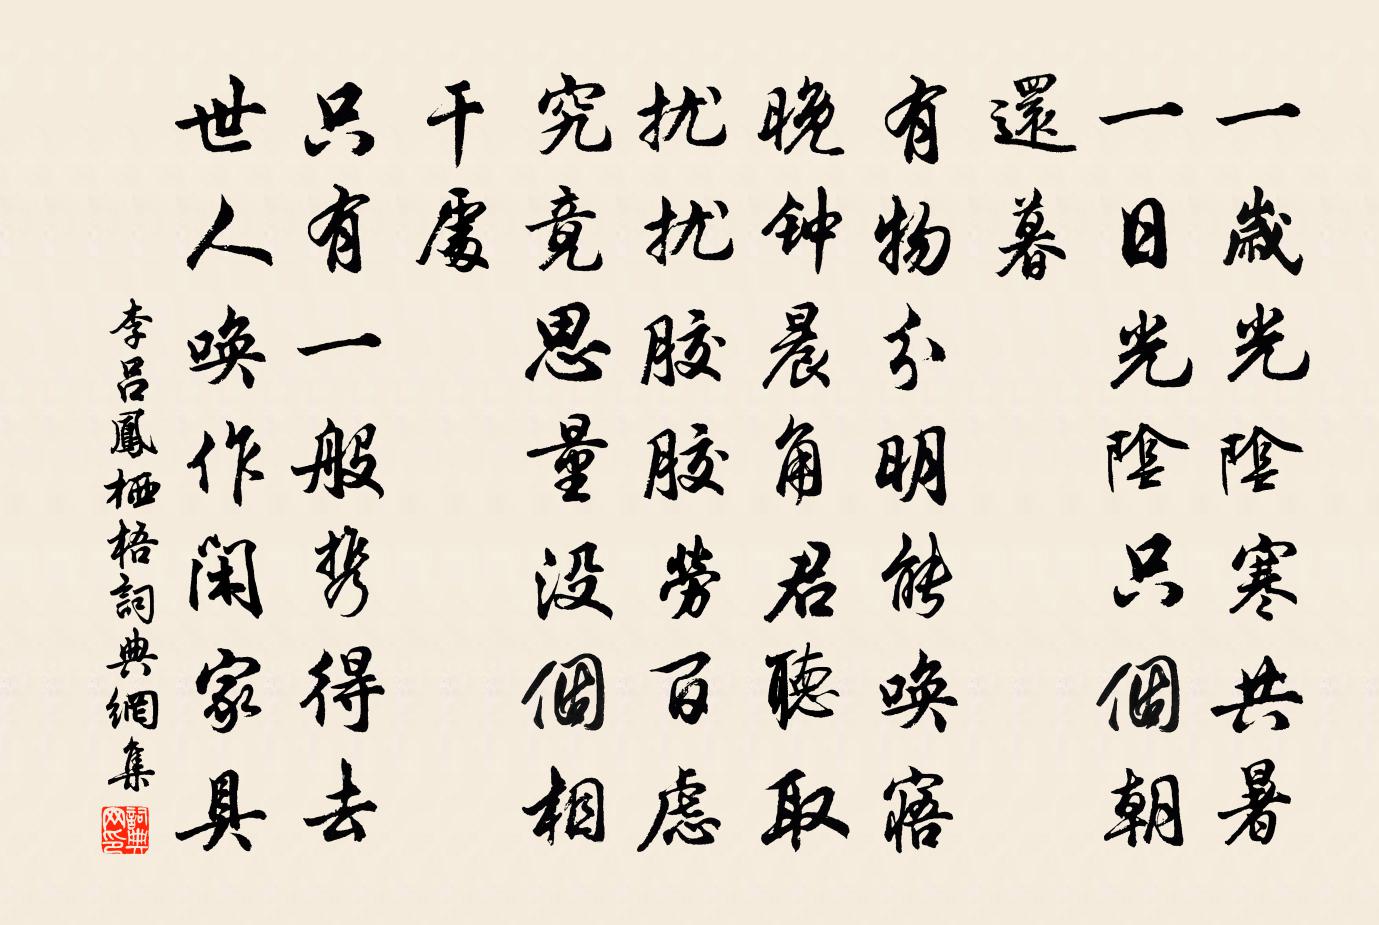 一歳光陰寒共暑
一日光陰只個朝
還暮
有物分明能唤寤
晚钟晨角君聽取
扰扰胶胶勞百慮
究竟思量没個相
干處
只有一般携得去
世人唤作闲家具
李吕鳳栖梧詞典網集
詞典网印